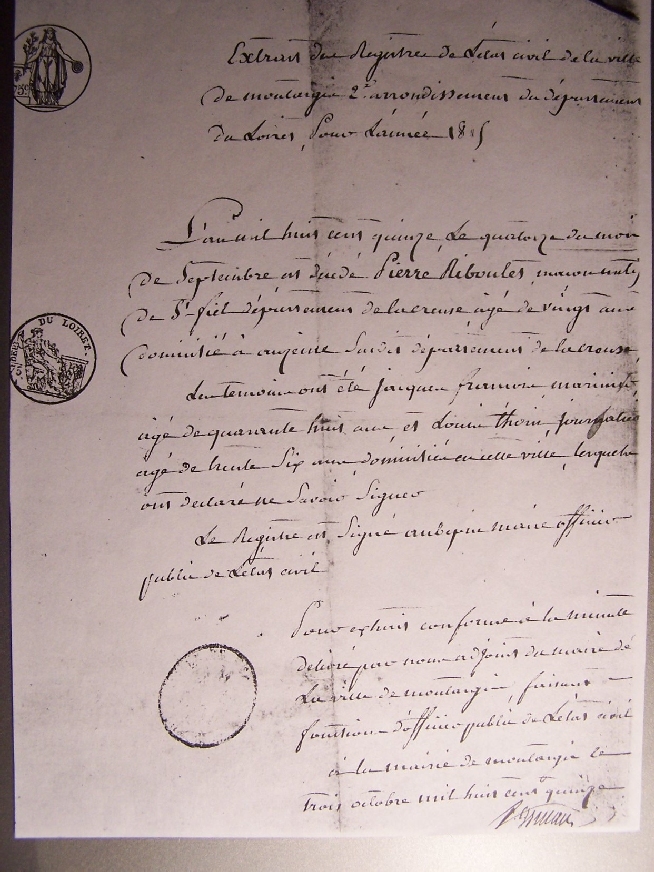 Extrait du Registre de L'état civil de la ville
de montargis 2e arrondissement du département
du Loiret, Pour L'année 1815
L'an mil huit cent quinze, Le quatorze du mois
de Septembre est Décédé Pierre Riboulet, macon natif
de St fiel département de la creuse agé de vingt ans
domicilié à dudit département de la creuse
Les temoins ont été jacques
agé de quarante huit ans et Louis thoin, journalier
agé de trente Six ans domicilié en cette ville, lesquels
ont declaré ne Savoir Signer
Le Registre est Signé maire officier
public de L'état civil
Pour extrait conforme à la minute
delivré par nous adjoint du maire de
La ville de montargis, faisant
fonctions d'officier public de L'état civil
à la mairie de montargis le
trois octobre mil huit cent quinze
DU LOIRET.